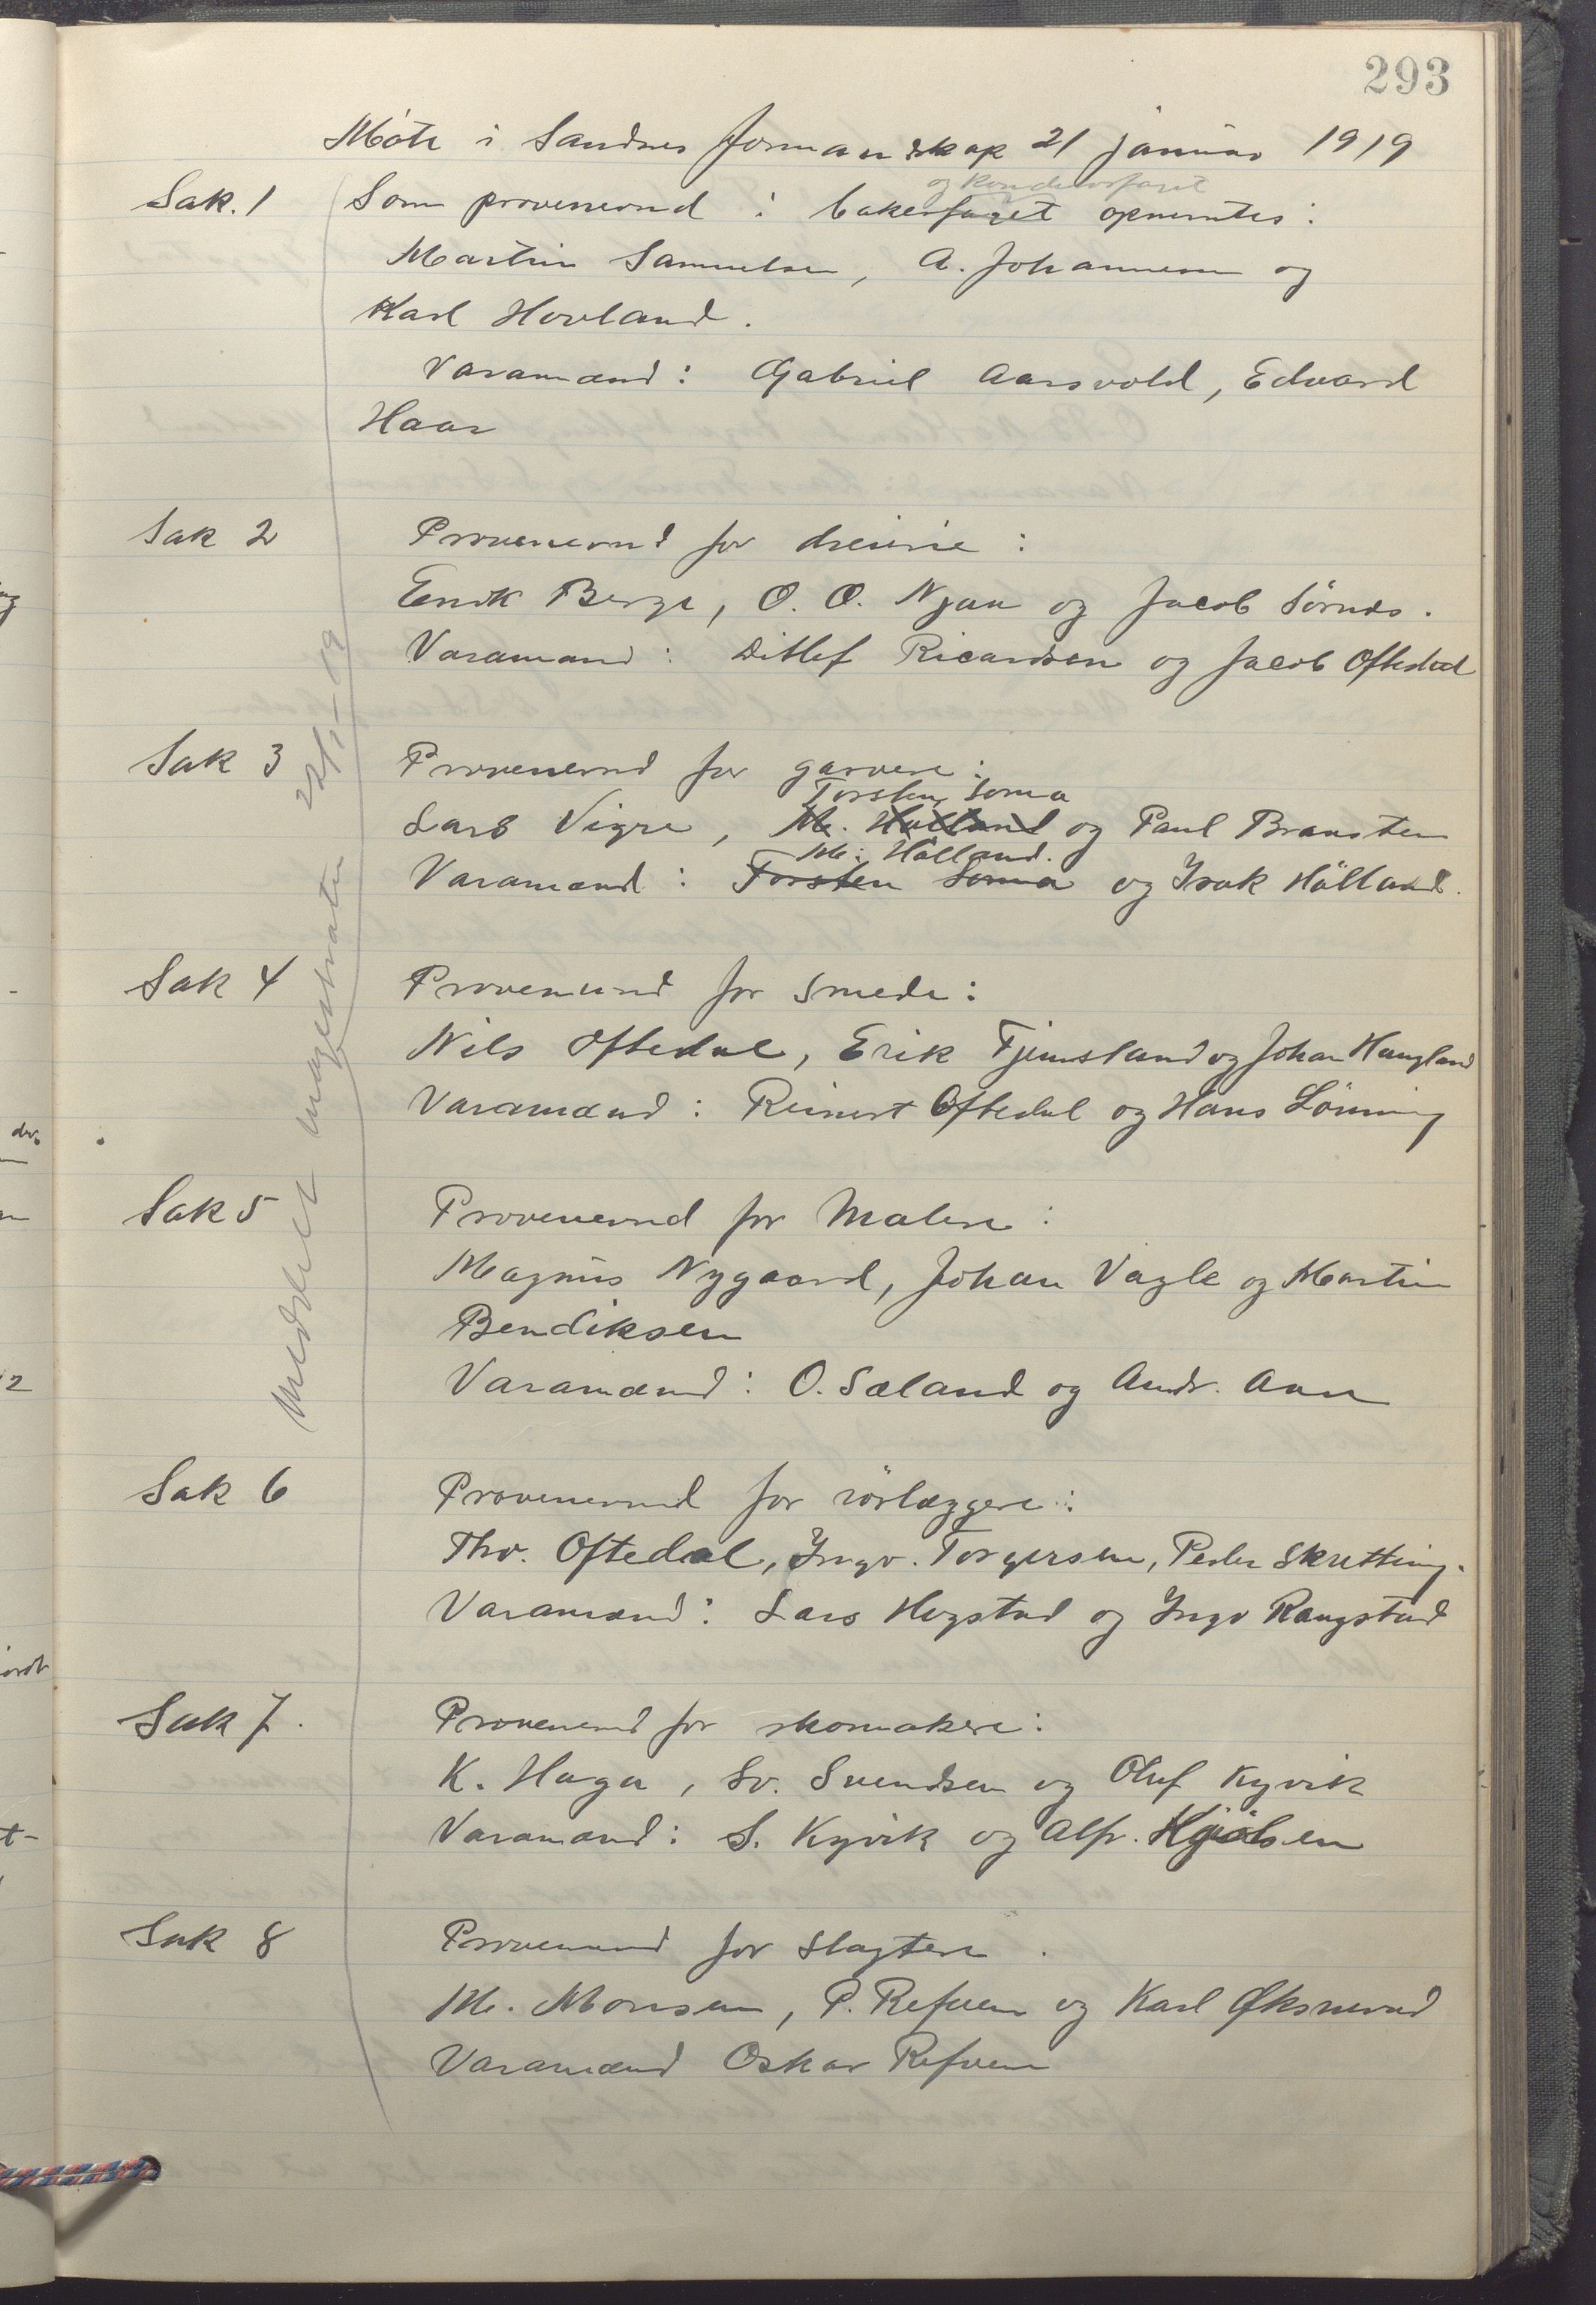 293
Møte i Sandnes formandskap 21 januar 1919
Sak. 1 Som prøvenevnd i bakerfaget opnevntes:
og konditorfaget
Martin Samuelsen, A. Johannesen og
Karl Hovland.
Varamænd: Gabriel Aarsvold, Edvard
Haar
Sak 2 Prøvenevnd for dreiere:
Enok Berge, O. O. Njaa og Jacob Sørnes.
Varamænd: Ditlef Ricardsen og Jacob Oftedal
Sak 3 Prøvenevnd for garvere:
Torsten Soma
Lars Vigre, M. Hølland og Paul Bransten
M. Hølland.
Varamænd: Torsten Soma og Isak Hølland.
Sak 4 Prøvenevnd for smeder:
Nils Oftedal, Erik Tjemsland og Johan Haugland
Varamænd: Reinert Oftedal og Hans Lønning
Sak 5 Prøvenevnd for Malere:
Magnus Nygaard, Johan Vagle og Martin
Bendiksen
Varamænd: O. Sæland og Andr. Aan
Sak 6 Prøvenevnd for rørlæggere:
Thv. Oftedal, Ingv. Torgersen, Peder Skretting.
Varamænd: Lars Hegstad og Ingv Raugstad
Sak 7. Prøvenevnd for skomakere:
K. Haga, Sv. Svendsen og Oluf Kyvik
Varamænd: S. Kyvik og Alfr. Kjølsen
Sak 8 Prøvenevnd for slagtere.
M. Monsen, P. Refven og Karl Øksnevad
Varamænd Oskar Refven
Meddelt magistraten 22/1-19